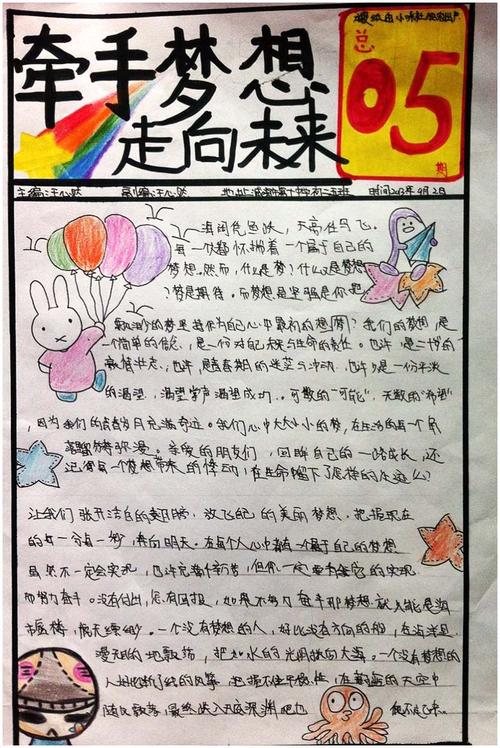 牵手梦想
走向未来
总
05
期
主编:汪心
时间2013年9月2日
天高任鸟飞。
每一个都怀揣着一个属于自己的
梦想。然而,什么是梦?什么是梦想
?梦是期待。而梦想是坚强
我们的梦想,是
一个简单的信念,是一份对自己未来与生命的责任。也许,是二十岁的
豪情壮志,也许,是青春期的迷茫与冲动,也许,是一份平淡
的渴望,渴望掌声渴望成功。无数的"可能",无数的"希望"
,因为我们的青春岁月充满奇迹。我们心中大大小小的梦,在生活的每一个角
落
亲爱的朋友们,回眸自己的一路成长,还
记得每一个梦想带来的悸动,在生命留下了怎样的
让我们张开洁白的翅膀,放飞自己的美丽梦想。把握现在
的每一分每一秒,奔向明天。在每个人心中都有一个属于自己的梦想
虽然不一定会实现,也许充满辛苦,但你一定要为它的实现
而努力奋斗。没有付出,怎有回报,如果不努力奋斗那梦想就只能是海
市蜃楼,虚无缥缈。一个没有梦想的人,好比没有方向的船,在海洋里
漫无目的地飘荡,把如水的光阴抛向大海。一个没有梦想的
人好比断了线的风筝,把握不住平衡,在蔚蓝的天空中
随风飘荡,最终跌入无底深渊